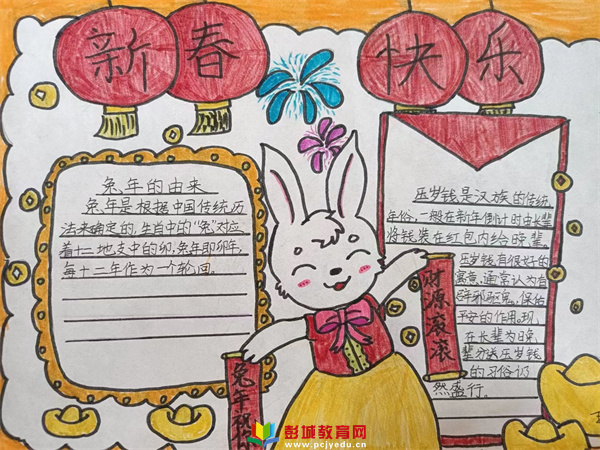 新春快乐
兔年的由来
兔年是根据中国传统历
法来确定的,生肖中的“兔”对应
着十二地支中的卯,兔年即卯年,
每十二年作为一个轮回。
压岁钱是汉族的传统
年俗,一般在新年倒计时由长辈
将钱装在红包内给晚辈。
压岁钱有很好的
寓意,通常认为有
辟邪驱鬼,保佑
平安的作用,现
在长辈为晚
辈分送压岁钱
的习俗仍
然盛行。
财源滚滚
兔年
彭城教育网
www.pcjyedu.cn